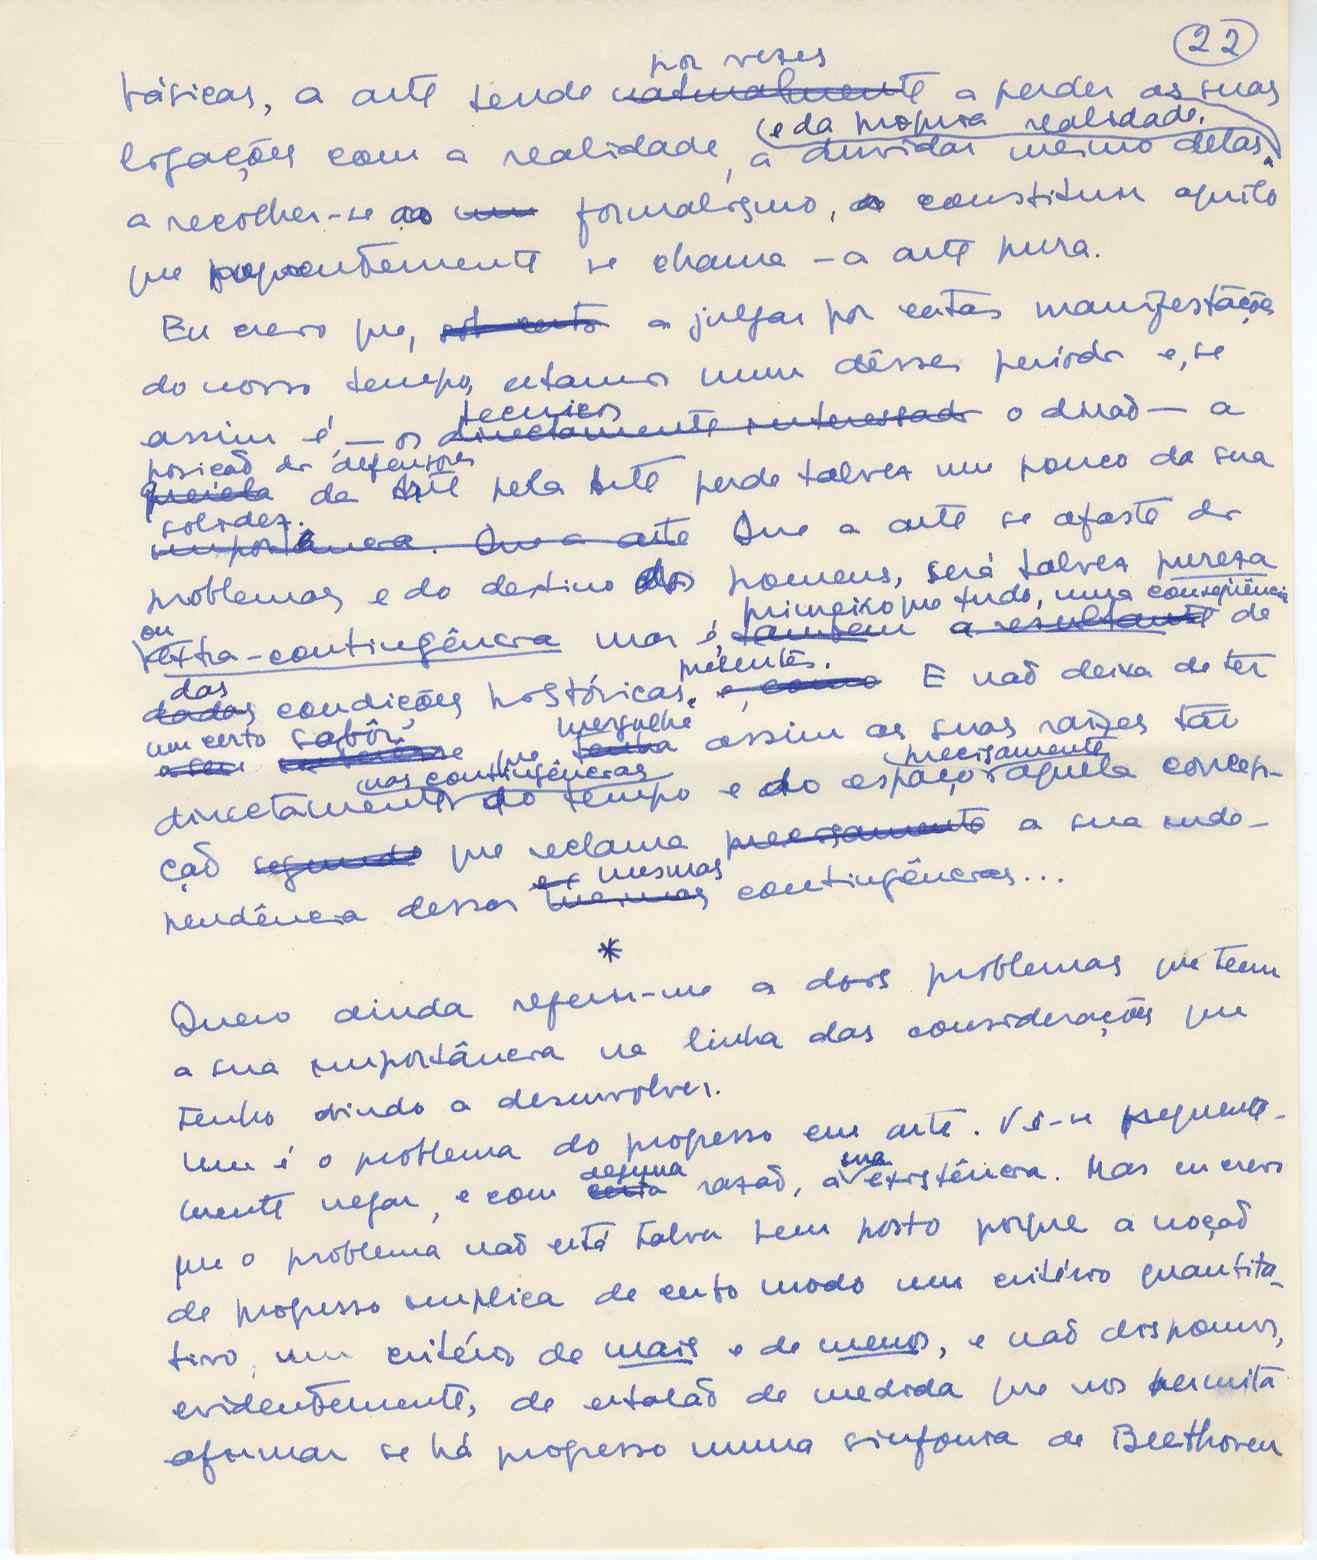 22
por vezes
básicas, a arte tende naturalmente a perder as suas
(e da própria realidade.
ligações com a realidade, a duvidar mesmo delas,
a recolher-se ao um formalismo, a constituir aquilo
que frequentemente se chama - a arte pura.
Eu creio que, a julgar por certas manifestações
do nosso tempo, estamos num dêsses períodos e, se
tecnicos
assim é, — os directamente interessados o dirão — a
posição dos defensores
da Arte pela Arte perde talvez um pouco da sua
solidez.
importância. Que a arte Que a arte se afaste dos
problemas e do destino dos homens, será talvez pureza
primeiro que tudo, uma consequência
ou
extra-contingência mas é, também a resultante de
das presentes.
dadas condições históricas, e, como E não deixa de ter
um certo sabôr mergulhe
que tenha assim as suas raizes tão
nas contingências precisamente
directamente do tempo e do espaço aquela concep-
ção segundo que reclama precisamente a sua inde-
mesmas
pendência dessas mesmas contingências...
*
Quero ainda referir-me a dois problemas que teem
a sua importância na linha das considerações que
tenho vindo a desenvolver.
Um é o problema do progresso em arte. Vê-se frequente-
alguma sua
mente negar, e com certa razão, a existência. Mas eu creio
que o problema não está talvez bem posto porque a noção
de progresso implica de certo modo um critério quantita-
tivo, um critério de mais e de menos, e não dispomos,
evidentemente, de estalão de medida que nos permita
afirmar se há progresso numa sinfonia de Beethoven